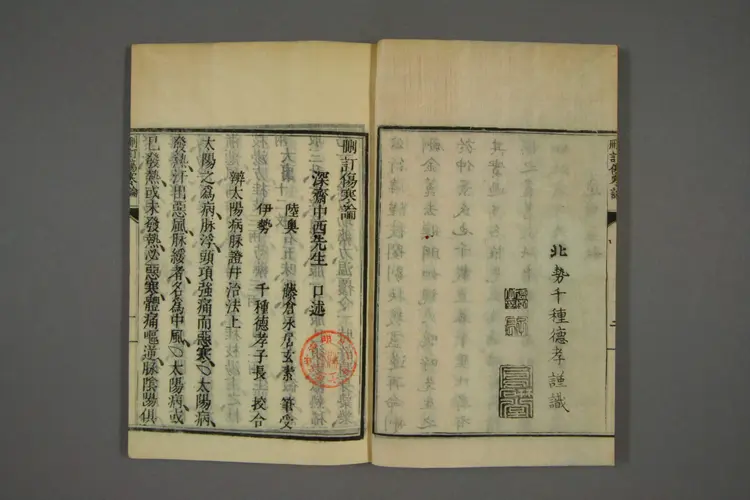 北勢千種德孝謹識
刪訂傷寒論
刪訂傷寒論
深齋中西先生 口述
陸奧 藤倉永居玄素 筆受
伊勢 千種德孝子長 挍合
辨太陽病脉證幷治法上
太陽之爲病脉浮頭項強痛而惡寒〇太陽病
發熱汗出惡風脉緩者名爲中風〇太陽病或
已發熱或未發熱必惡寒體痛嘔逆脉陰陽俱
刪訂傷寒論